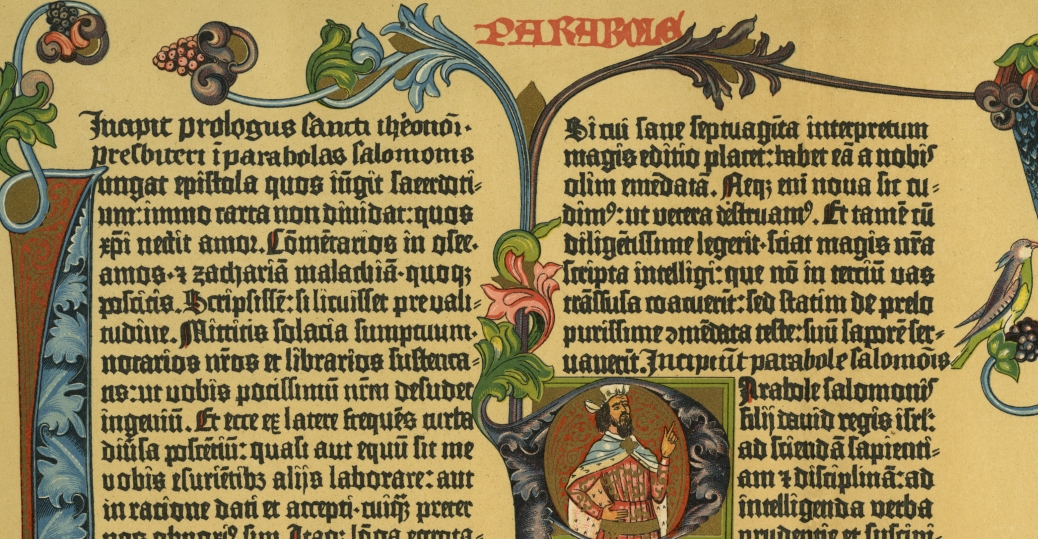 PARABOLE
Incipit prologus sancti iheronimi
presbiteri ī parabolas salomonis
Iungat epistola quos iūgit sacerdoti-
um: immo carta non diuidat: quos
xp̄i nectit amor. Cōmētarios in osee.
amos. ⁊ zachariā malachiā. quoqꝫ
poscitis. Scripsissē: si licuisset pre vali-
tudine. Mittitis solacia sumptuum.
notarios nr̄os et librarios sustenta-
tis: ut vobis potissimū nr̄m desudet
ingeniū. Et ecce ex latere frequēs turba
diūsa poscētiū: quasi aut equū sit me
vobis esuriētibꝫ alijs laborare: aut
in racione dati et accepti. cuiq̄ꝫ preter
vos obnoxiꝰ sim. Itaqꝫ lōga egrota-
Si cui sane septuagīta interpretum
magis editio placet: habet eā a nobis
olim emēdatā. Neqꝫ em̄ noua sic cu-
dimꝰ: ut vetera destruamꝰ. Et tamē cū
diligētissime legerit. sciat magis nr̄a
scripta intelligi: que nō in terciū vas
trāsfusa coacuerit: sed statim de prelo
purissime ꝯmēdata teste: suū saporē ser-
uauerit. Incipiūt parabole salomōis
Parabole salomonis
filij dauid regis isrl̄:
ad sciendā sapienti-
am ⁊ disciplinā: ad
intelligenda verba
prudentie et suscipi-